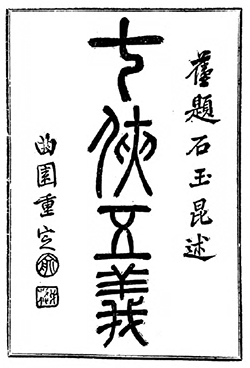 舊題石玉昆述
七俠五義
曲園重定
俞
樾